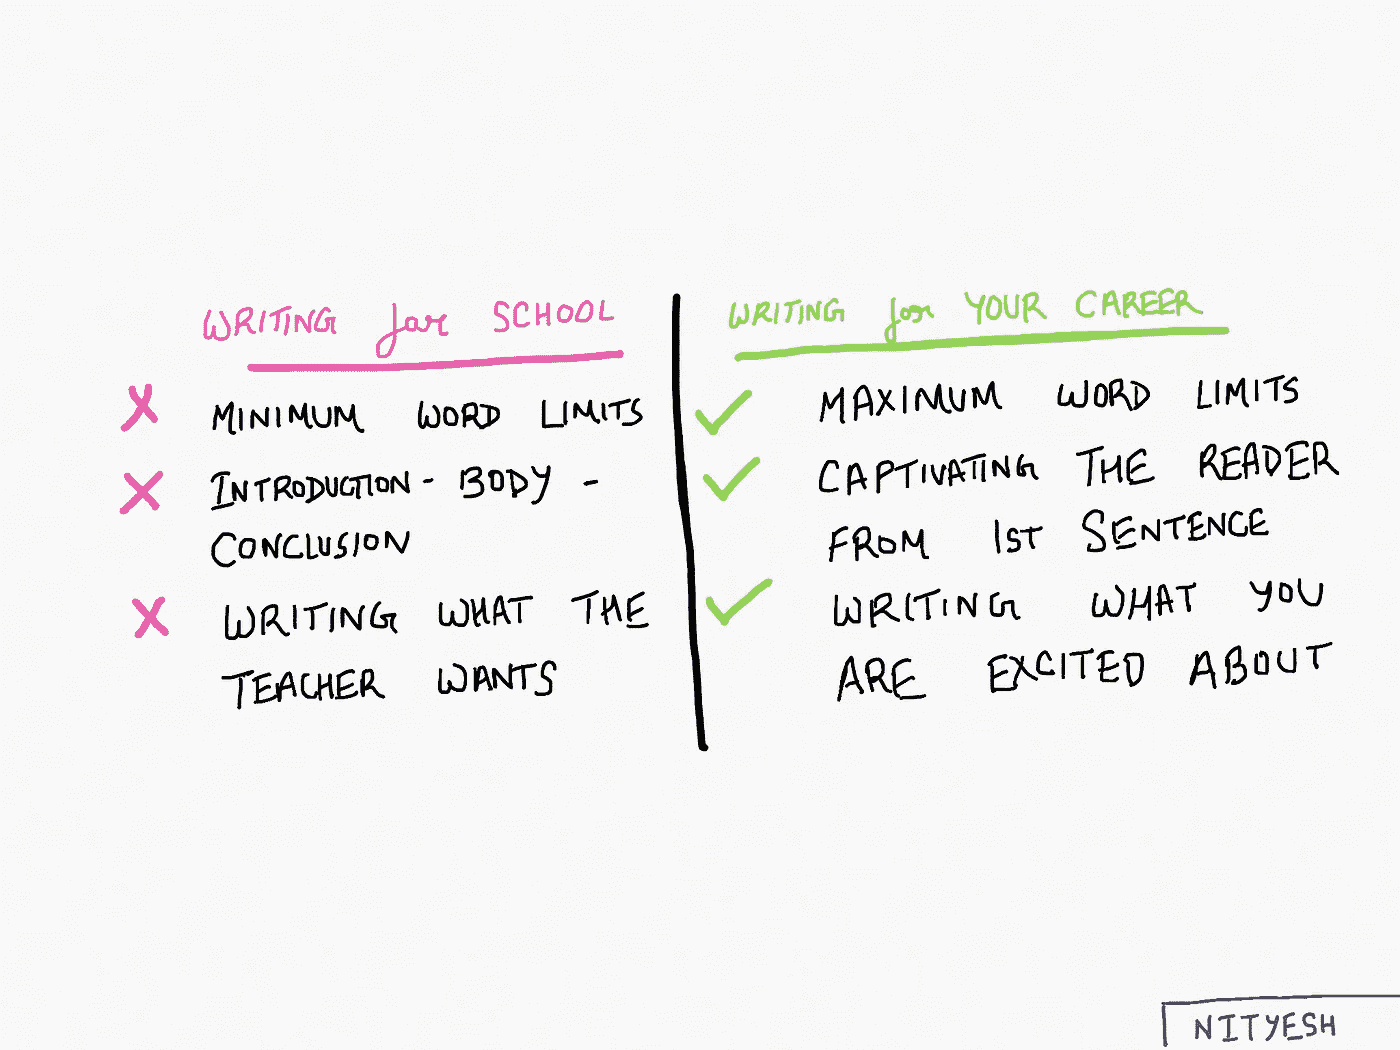 WRITING for SCHOOL
MINIMUM WORD LIMITS
INTRODUCTION - BODY -
CONCLUSION
WRITING WHAT THE
TEACHER WANTS
WRITING for YOUR CAREER
MAXIMUM WORD LIMITS
CAPTIVATING THE READER
FROM 1ST SENTENCE
WRITING WHAT YOU
ARE EXCITED ABOUT
NITYESH